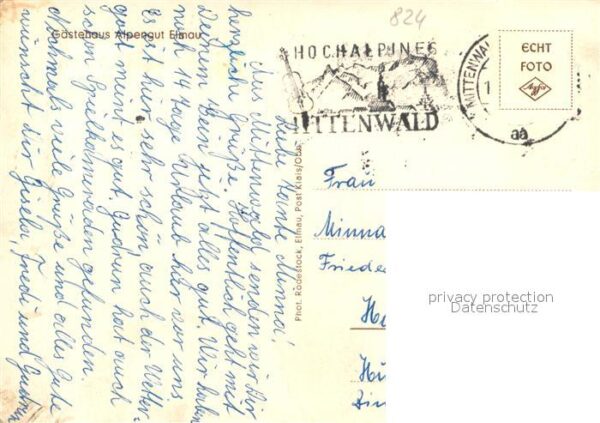 824
Gästehaus Alpengut Elmau
HOCHALPINES
MITTENWALD
MITTENWA
1
aa
ECHT
FOTO
Agfa
Phot. Rödestock, Elmau, Post Klais/Obb.
Liebe Tante Minna!
Aus Mittenwald senden wir Dir
herzliche Grüße. Hoffentlich geht mit
Deinem Bein jetzt alles gut. Wir haben
noch 11 Tage Urlaub hier vor uns
es ist hier sehr schön auch der Wetter-
gott meint es gut. Gudrun hat auch
schon Spielkameraden gefunden.
Nochmals viele Grüße und alles Gute
wünscht Dir Gisela, Fredi und Gudrun
Frau
Minna
Friede
Ha
Hü
privacy protection
Datenschutz